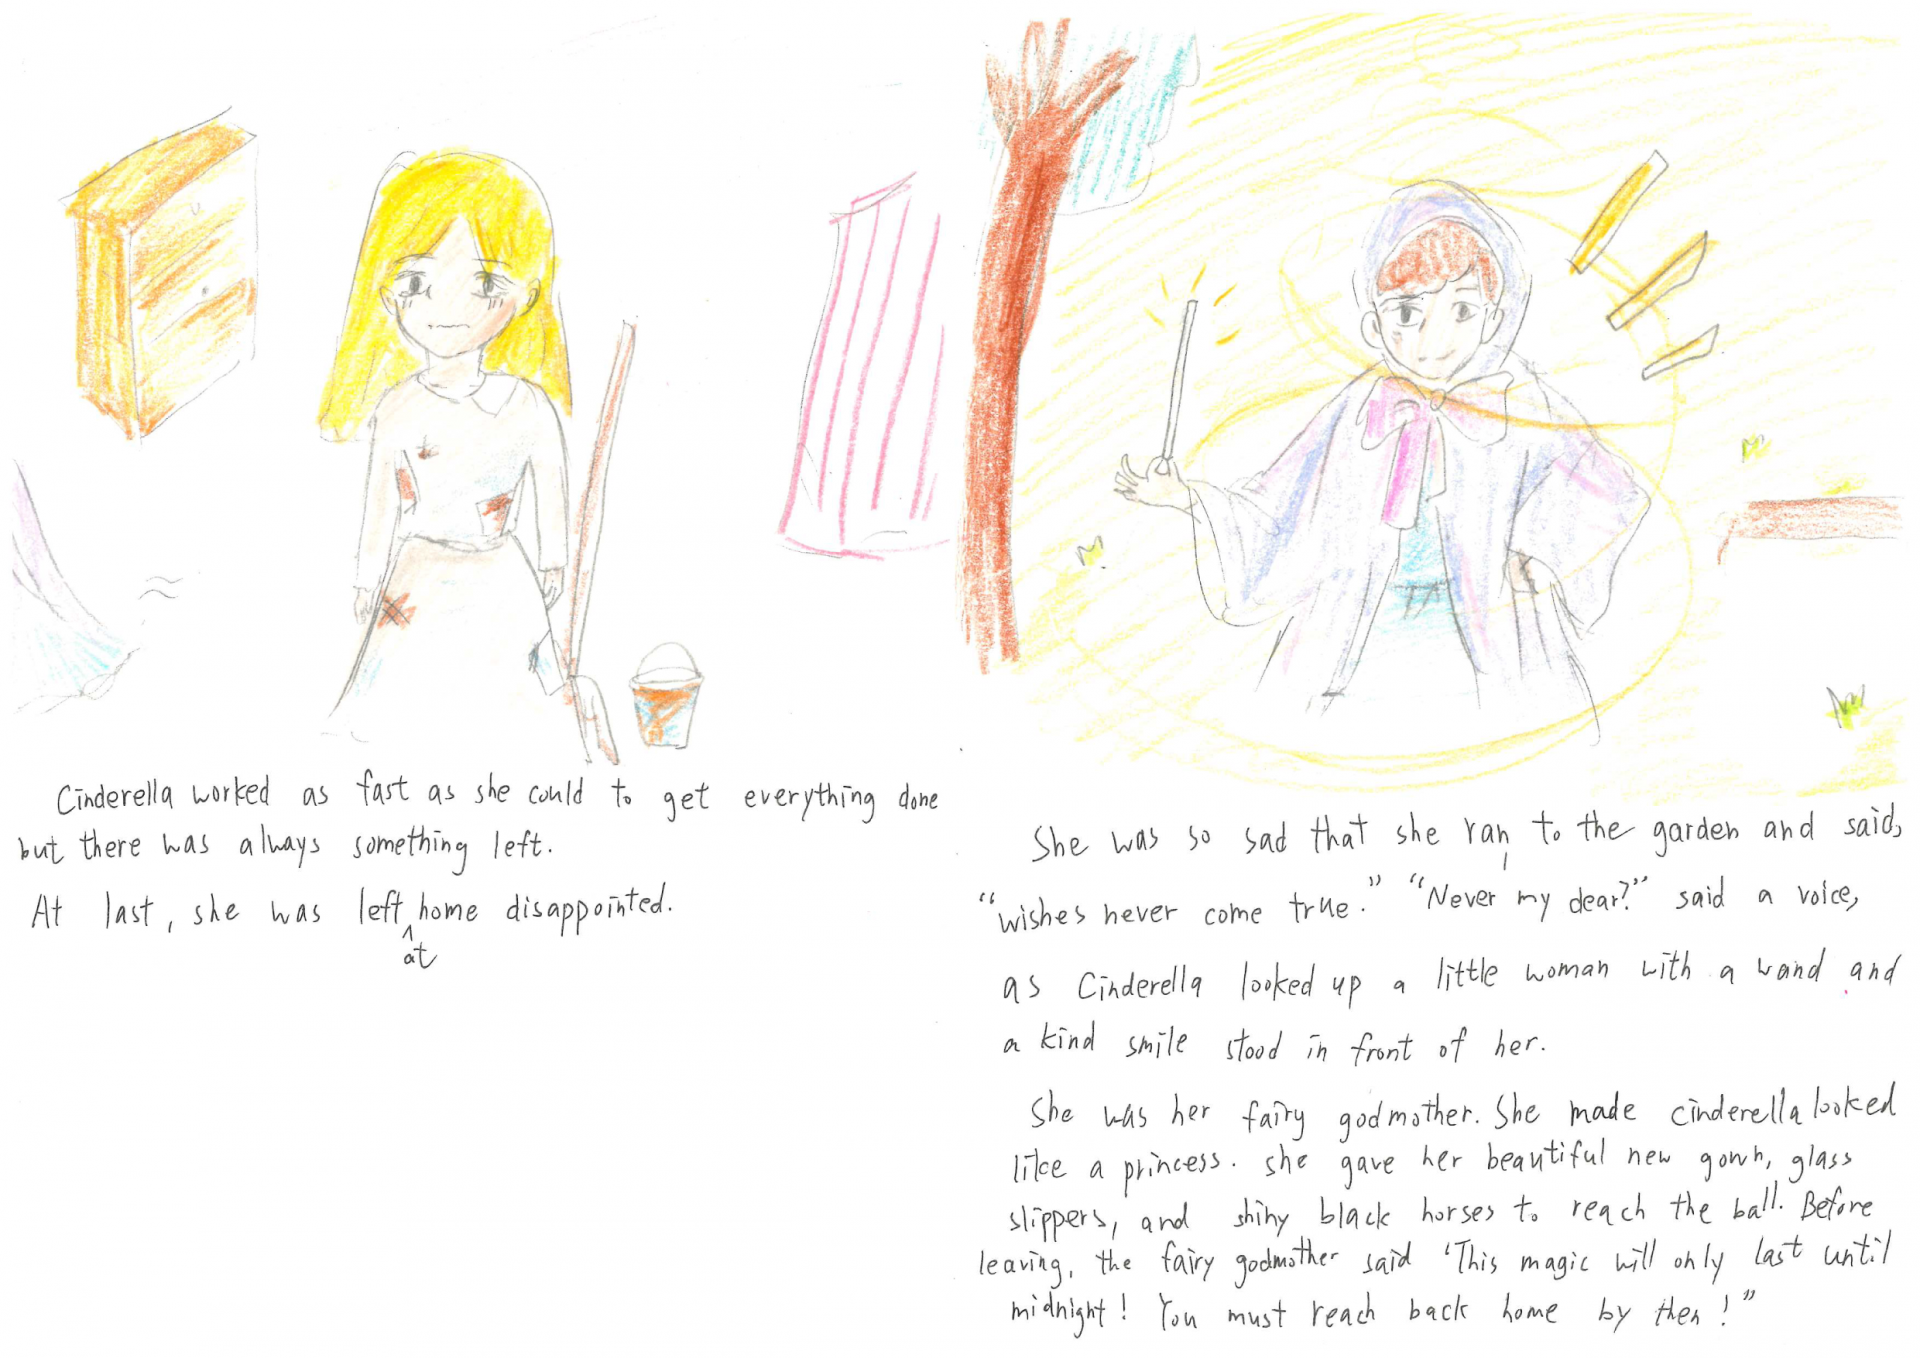 Cinderella worked as fast as she could to get everything done
but there was always something left.
At last, she was left at home disappointed.
She was so sad that she ran to the garden and said,
"wishes never come true." "Never my dear?" said a voice,
as Cinderella looked up a little woman with a wand and
a kind smile stood in front of her.
She was her fairy godmother. She made cinderella looked
like a princess. she gave her beautiful new gown, glass
slippers, and shiny black horses to reach the ball. Before
leaving, the fairy godmother said 'This magic will only last until
midnight! You must reach back home by then!"